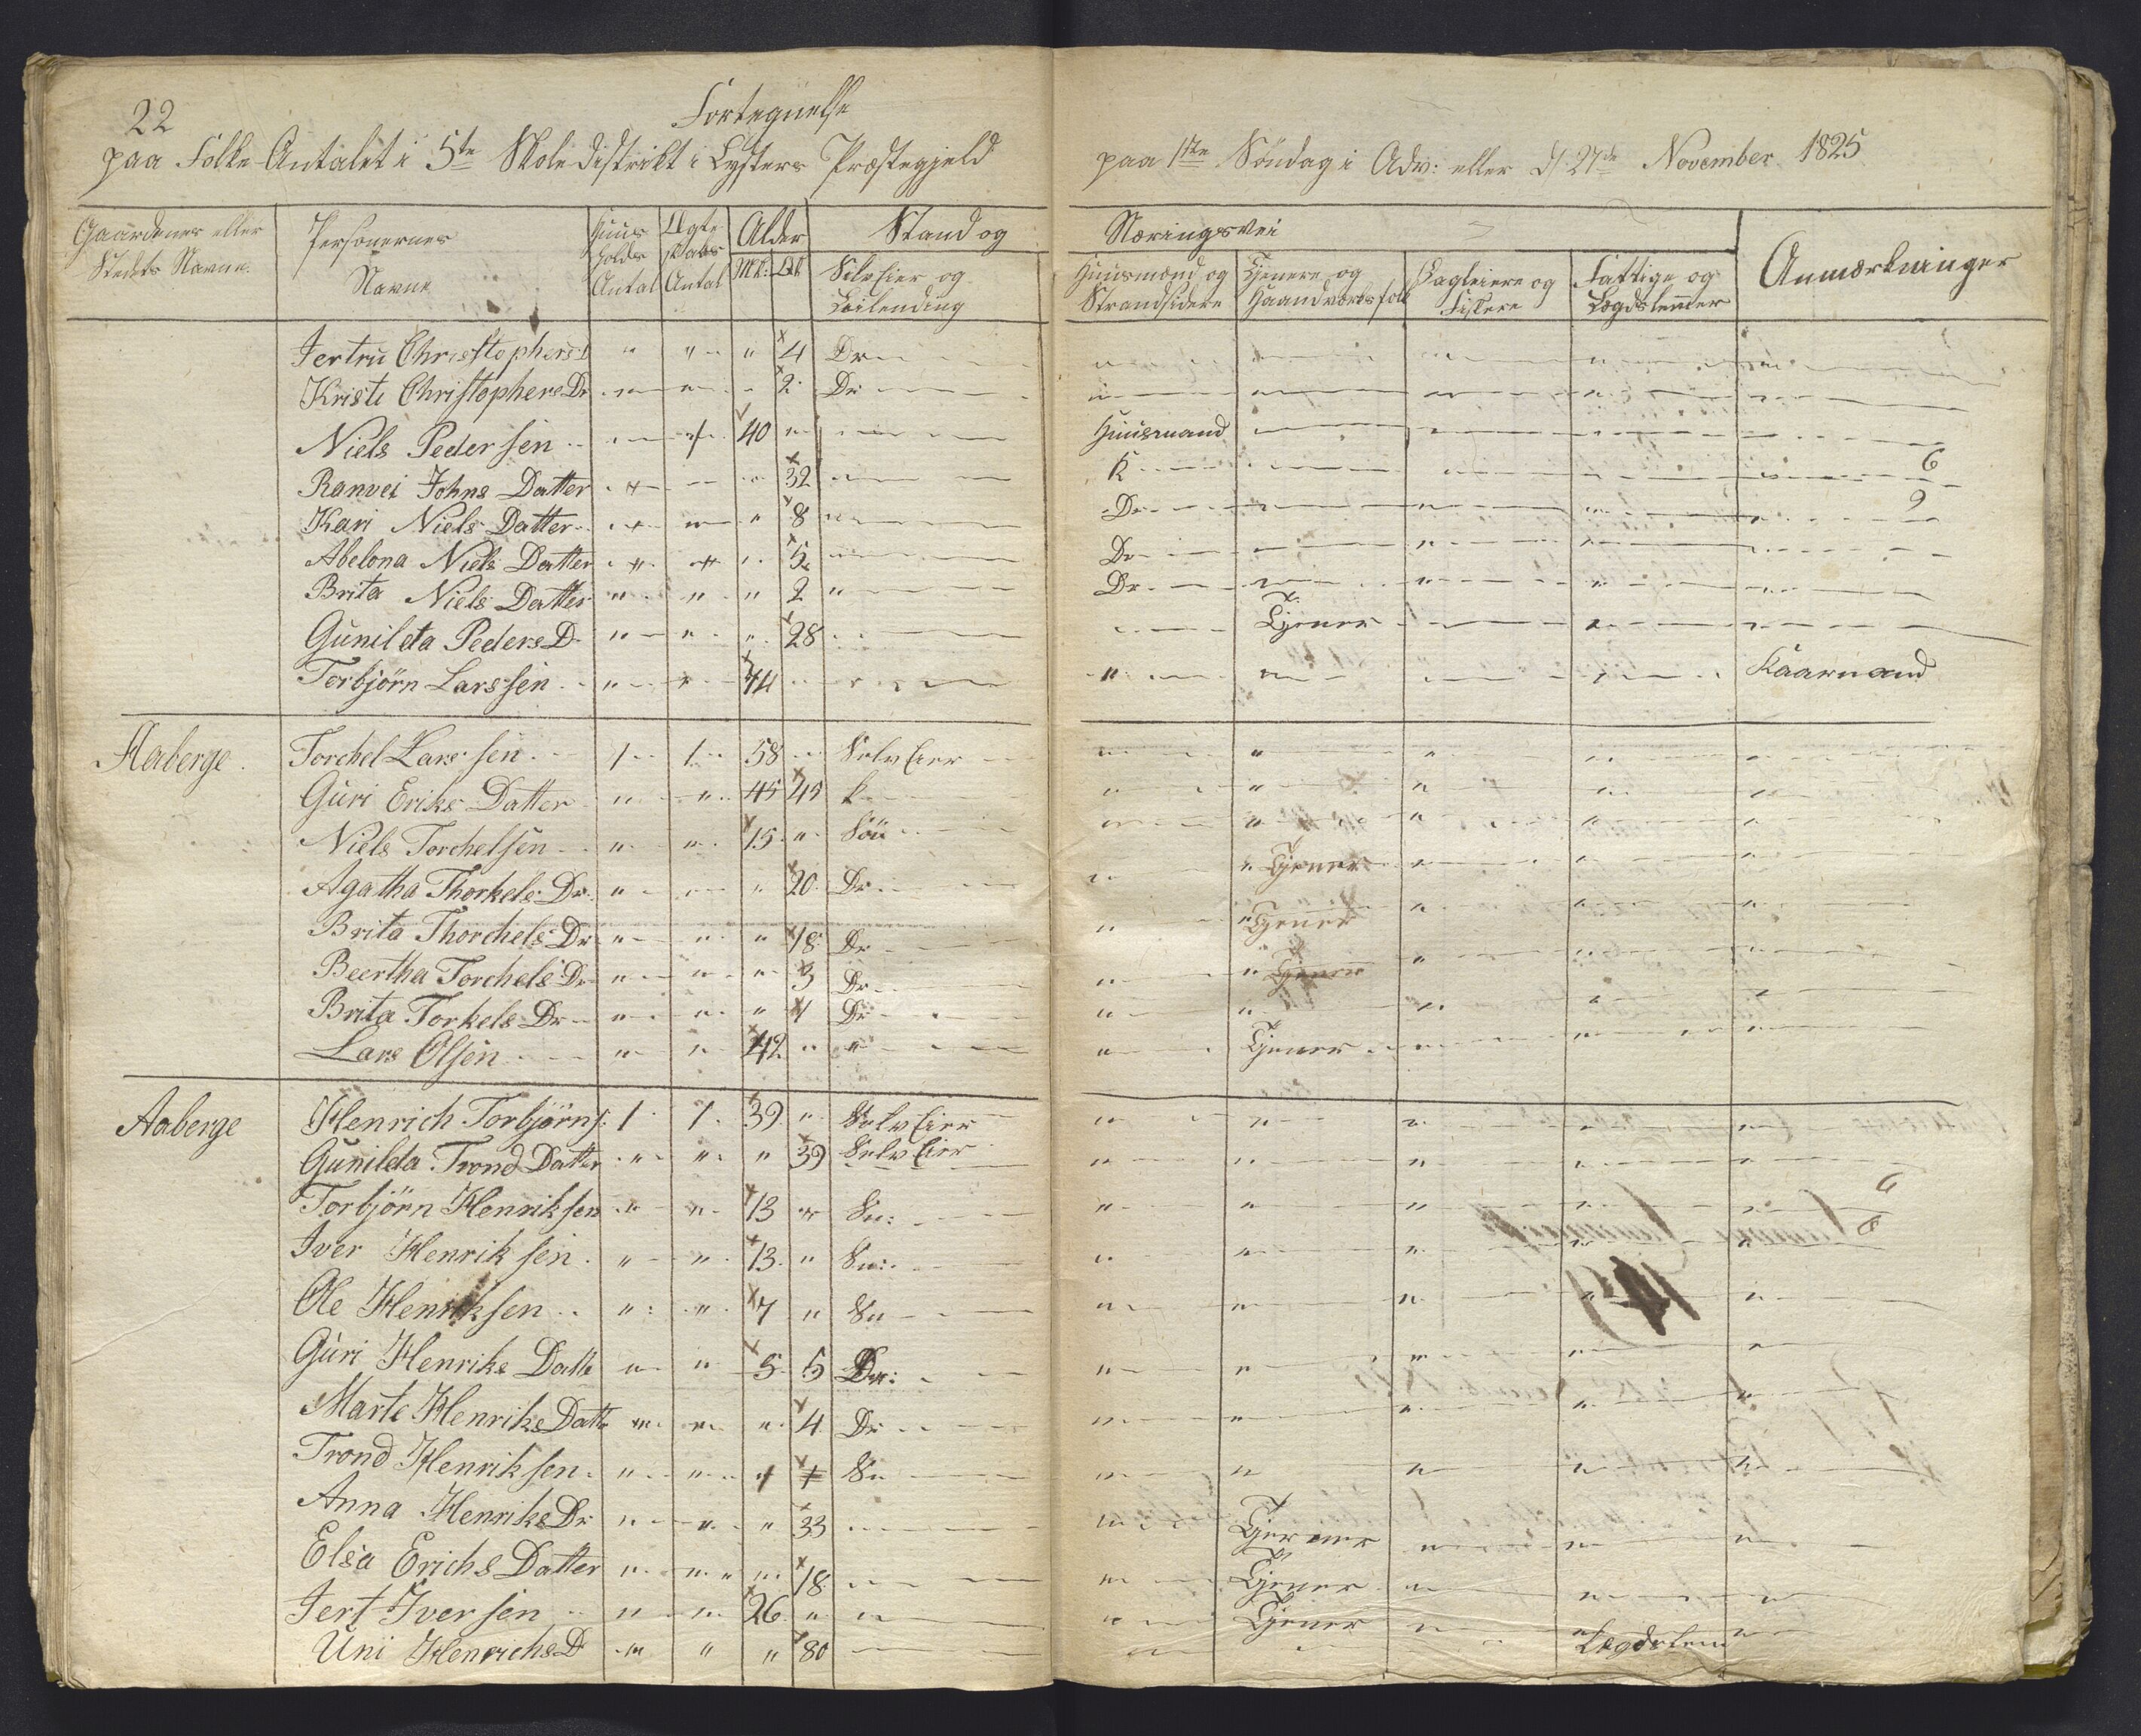 22
Fortegnelse
paa Folke-Antalet i 5te Skoledistrikt i Lysters Præstegjeld paa 1ste Söndag i Adv: eller d. 27de November 1825
Gaardenes eller Stedets Navne. Personernes Navne Huus holds Antal Ægte skabs Antal Alder Mk: Qk: Stand og Næringsvei Anmærkninger
SelvEier og Leilending Huusmænd og Strandsidere Tjenere og Haandværksfolk Dagleiere og Fiskere Fattige og Lægdslemer
Jertru Christophers D " " " 4 Dr
Kristi Christophers Dr " " " 2 Dr
Niels Pedersen " 1 40 " Huusmand
Ranvei Johns Datter " " " 32 K 6
Kari Niels Datter " " " 8 Dr 9
Abelona Niels Datter " " " 5 Dr
Brita Niels Datter " " " 2 " Dr
Gunilda Peders D " " " 28 Tjener
Torbjörn Larssen " " 74 Kaarmand
Aaberge Torchel Larssen 1 1 58 SelvEier
Guri Eriks Datter " " 45 45 K
Niels Torchelsen " " 15 " Sön
Agatha Thorkels Dr " " " 20 Dr Tjener
Brita Thorchels Dr " " " 18 Dr Tjener
Beertha Torchels Dr " " " 3 Dr Tjener
Brita Torkels Dr " " " 1 Dr
Lars Olsen " " 42 " " Tjener
Aaberge Henrich Torbjörns: 1 1 39 " SelvEier
Gunilda Trond Datter " " " 39 SelvEier
Torbjörn Henriksen " " 13 " Sn: 6
Iver Henriksen " " 13 " Sn: 8
Ole Henriksen " " 7 " Sn
Guri Henriks Datte " " 5 5 Dr:
Marte Henriks Datte " " " 4 Dr
Trond Henriksen " " 1 Sn
Anna Henriks Dr " " " 33 Tjener
Elsa Erichs Datter " " " 18 Tjener
Jert Iversen " " 26 " " Tjener
Uni Henrichs D " " " 80 Lægdslem